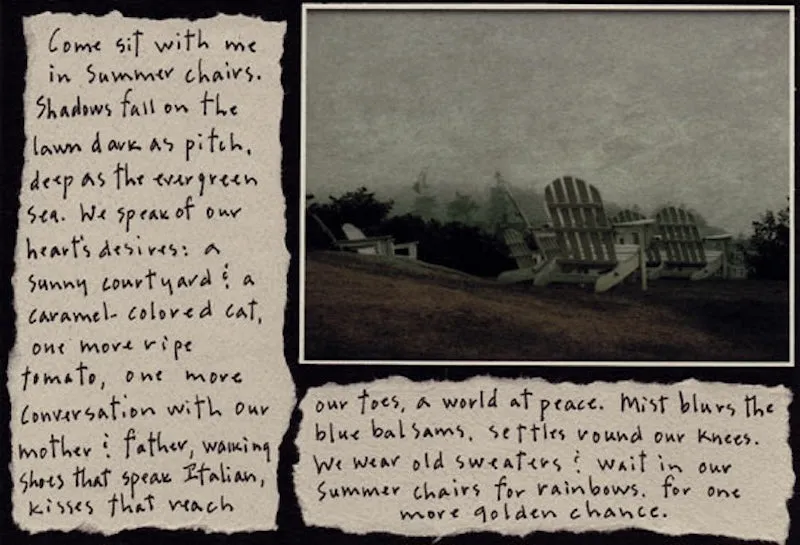 Come sit with me
in Summer chairs.
Shadows fall on the
lawn dark as pitch,
deep as the evergreen
sea. We speak of our
heart's desires: a
sunny courtyard & a
caramel-colored cat,
one more ripe
tomato, one more
conversation with our
mother & father, walking
shoes that speak Italian,
kisses that reach
our toes, a world at peace. Mist blurs the
blue balsams, settles round our knees.
We wear old sweaters & wait in our
Summer chairs for rainbows. for one
more golden chance.